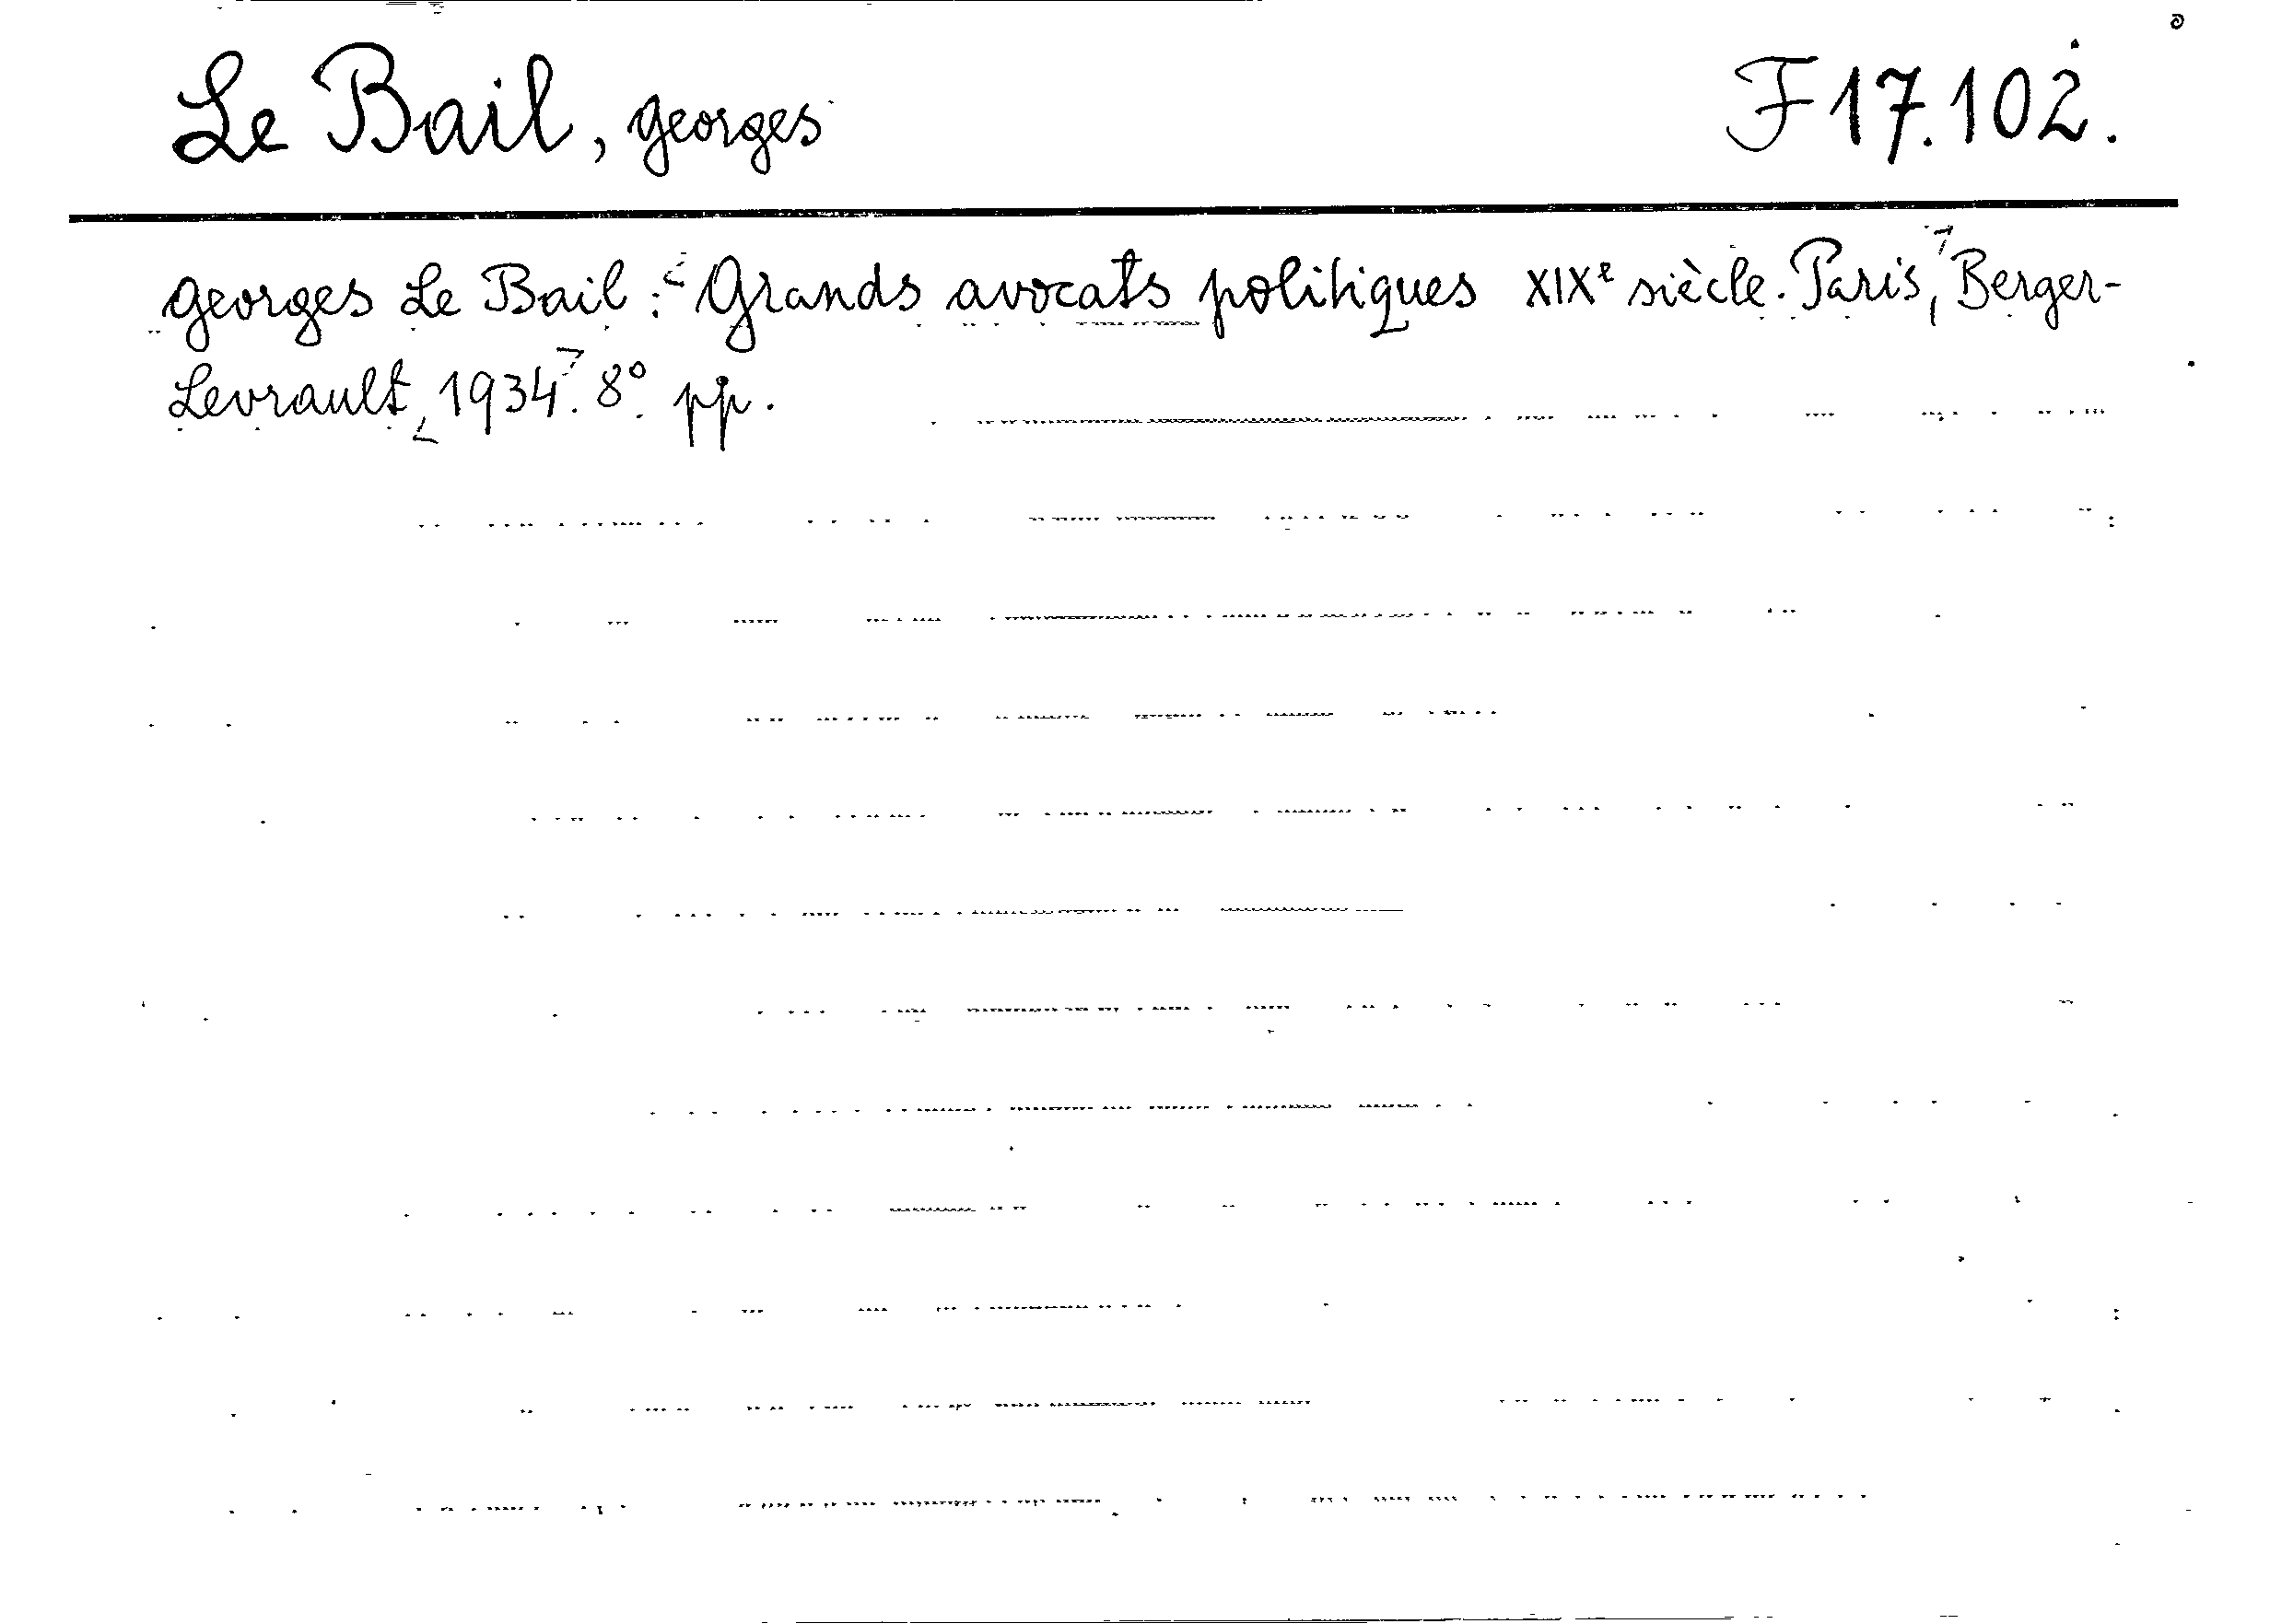 Le Bail, Georges F 17.102.
Georges Le Bail: Grands avocats politiques XIXe siècle. Paris, Berger-
Levrault, 1934. 8°. pp.